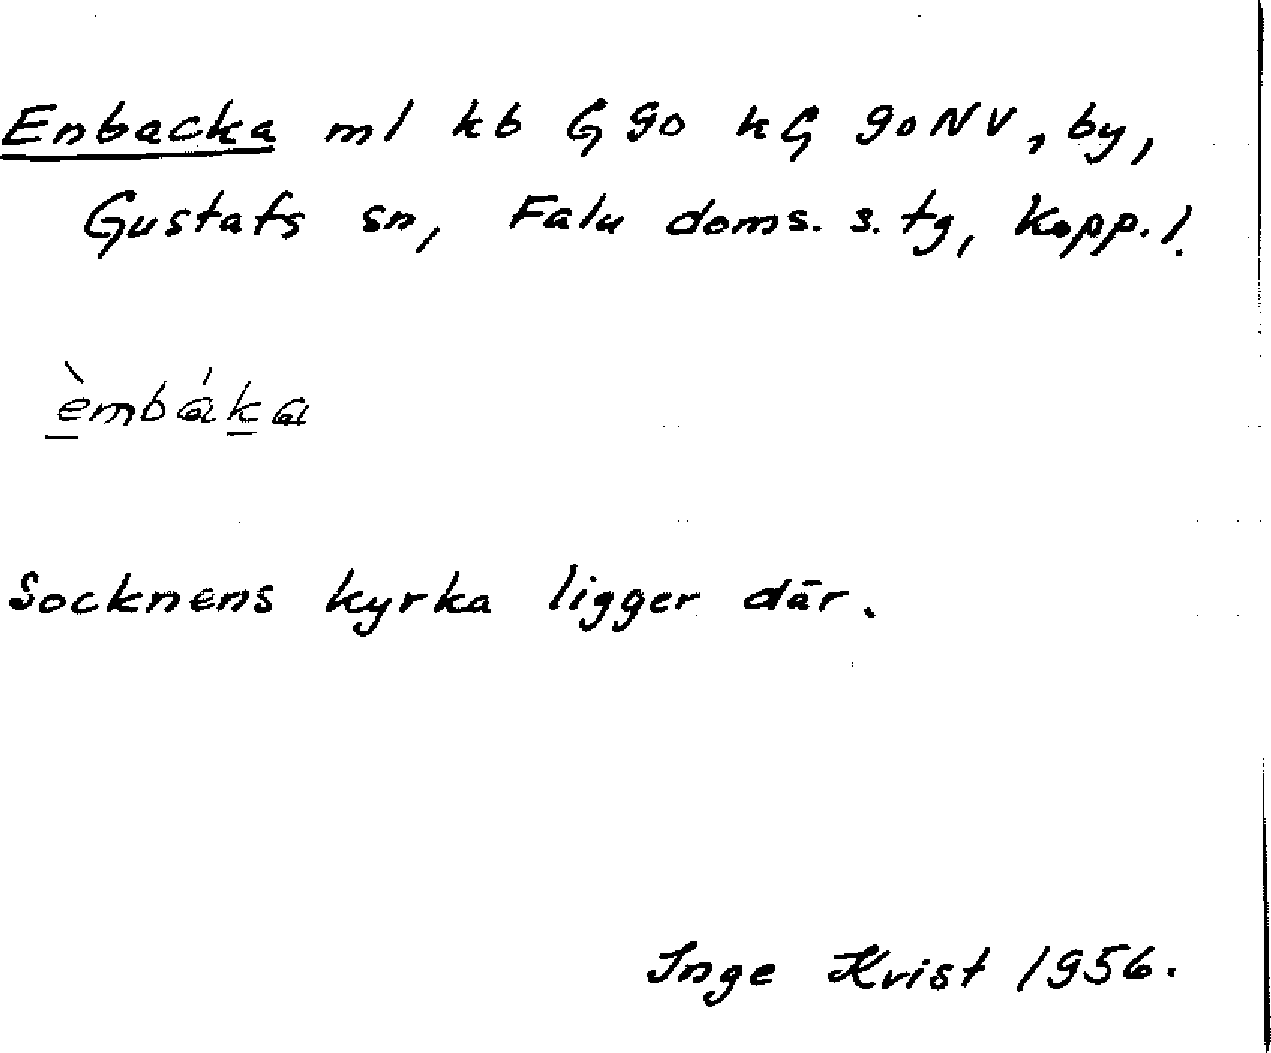 Enbacka ml kb G go kG goNV, by,
Gustafs sn, Falu doms. s. tg, Kopp. l.
èmbáka
Socknens kyrka ligger där.
Inge Kvist 1956.